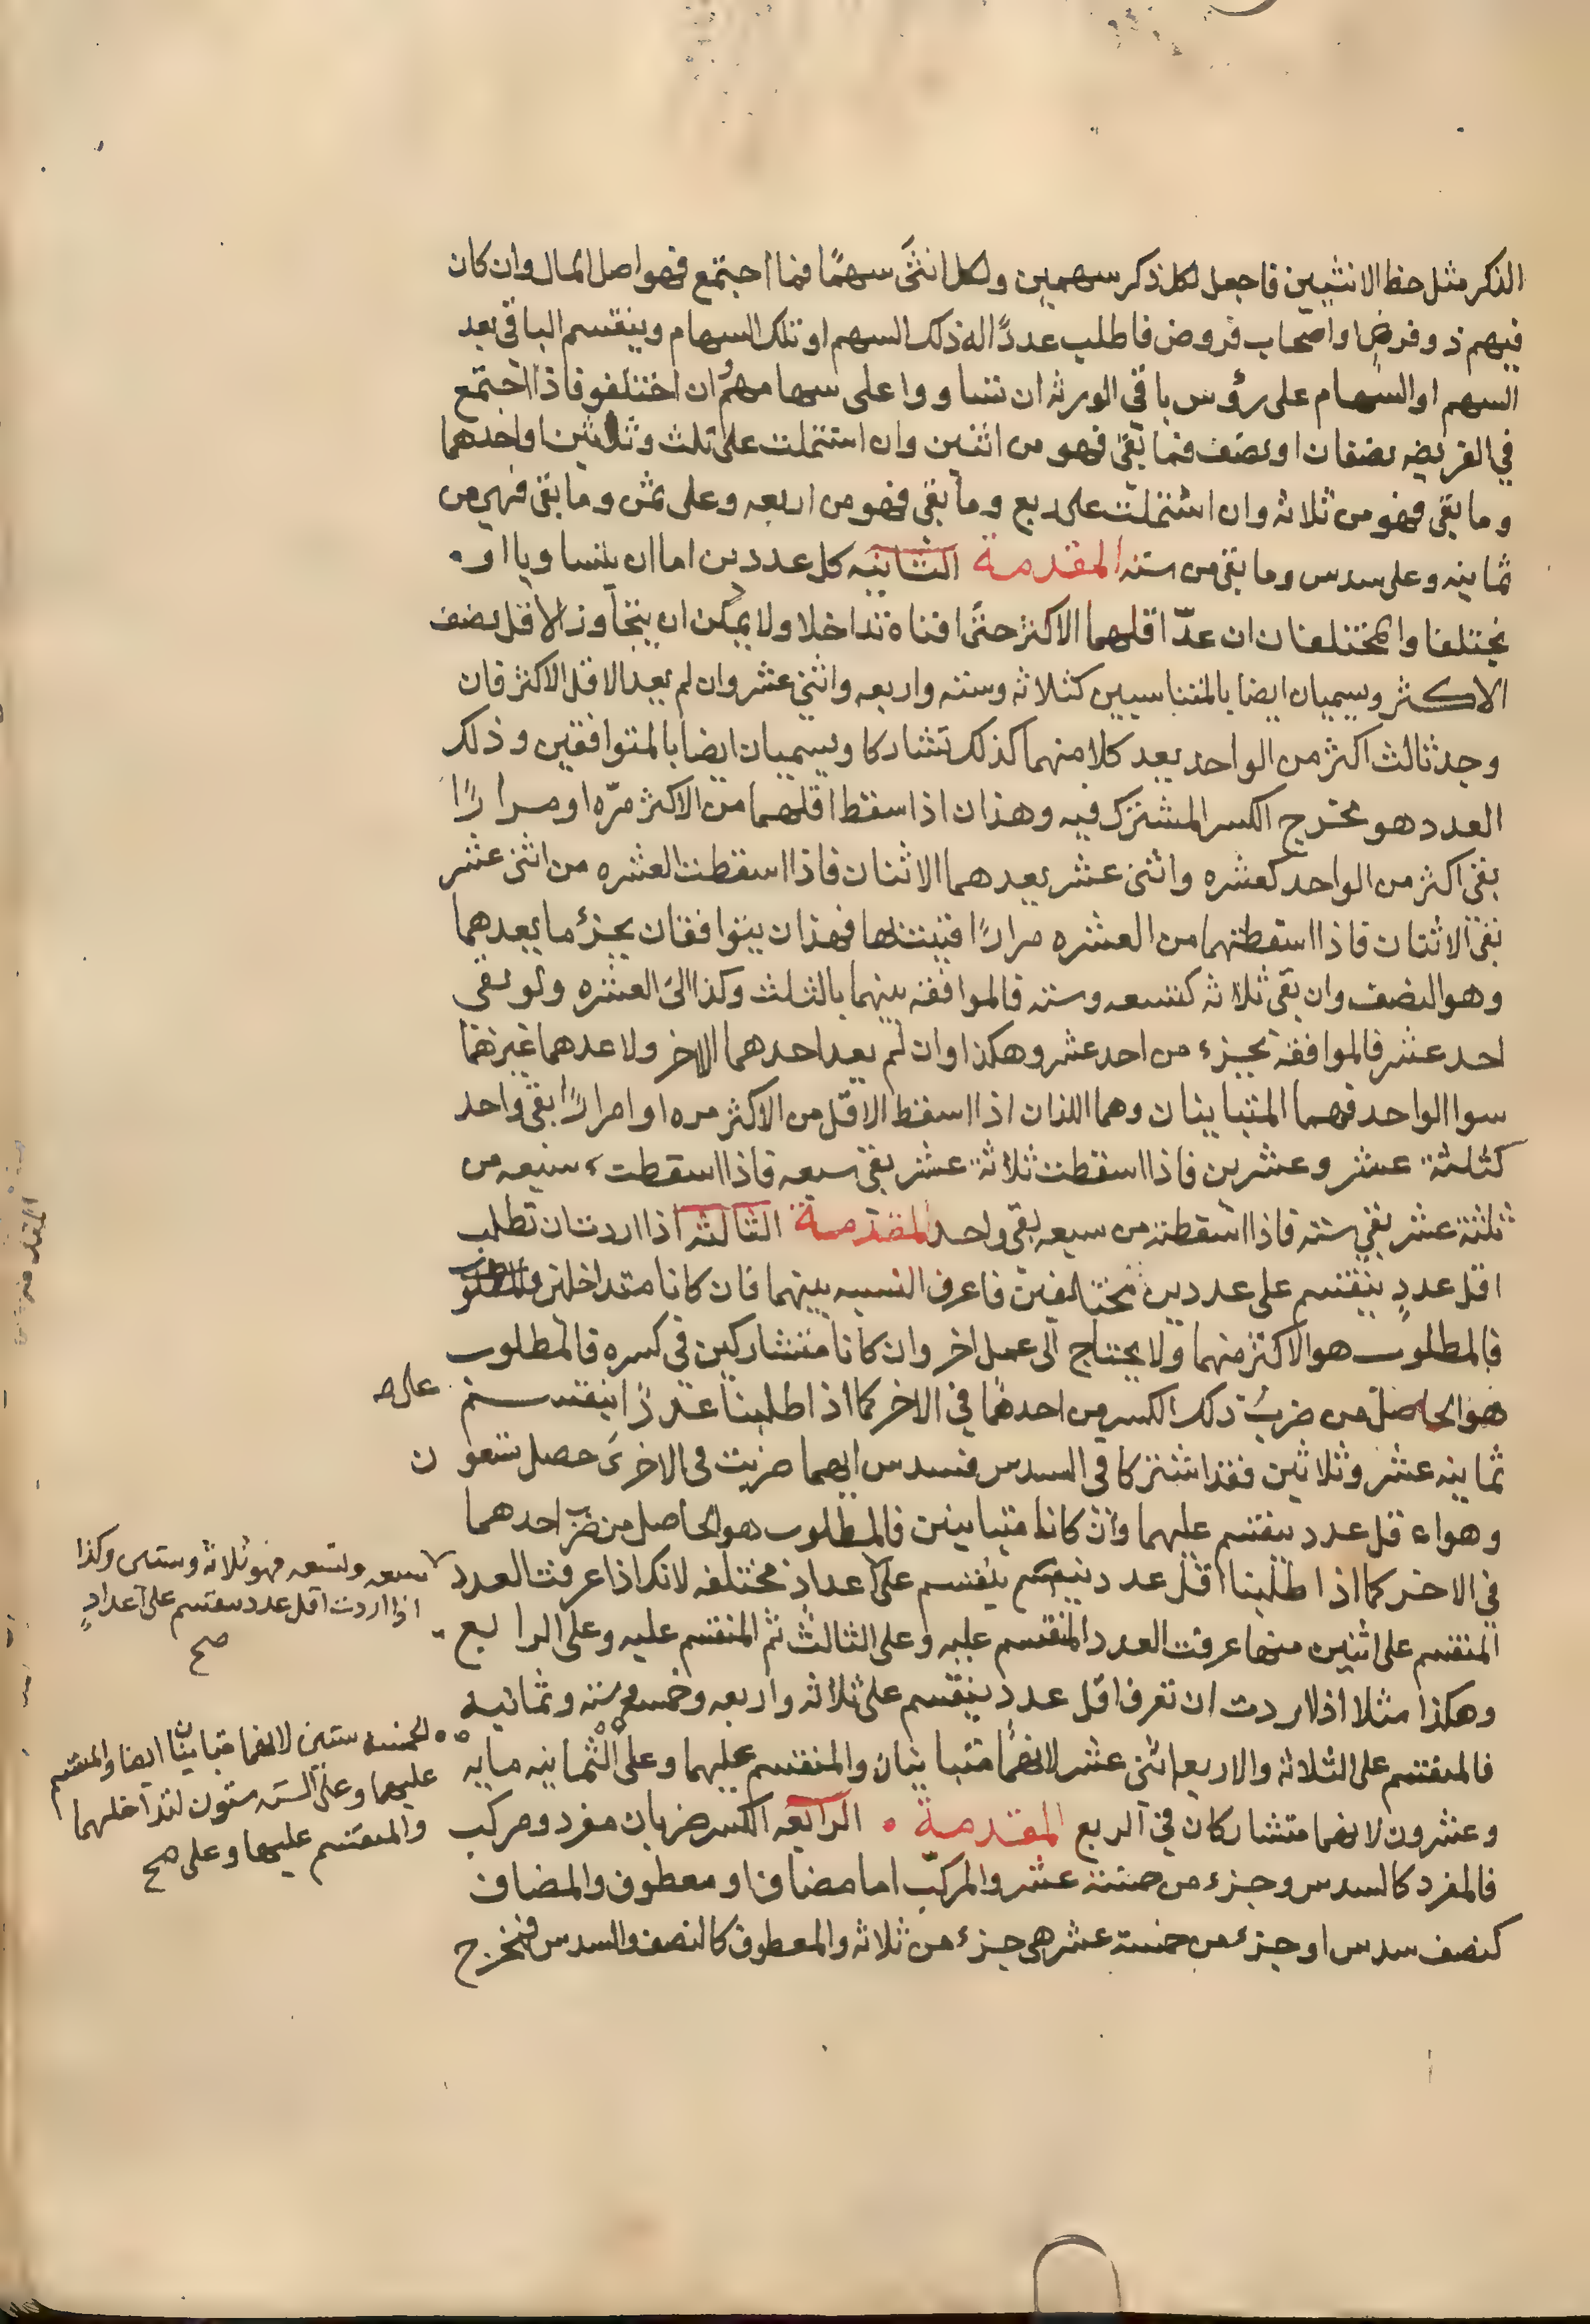 الذكر مثل حظ الانثيين فاجعل لكل ذكر سهمين ولكل انثى سهمًا فما اجتمع فهو اصل المال وان كان
فيهم ذو فرض او اصحاب فروض فاطلب عددًا له ذلك السهم او تلك السهام وينقسم الباقي بعد
السهم او السهام على رؤس باقي الورثه ان تساووا على سهامهم ان اختلفو فاذا اجتمع
في الفريضه نصفان او نصف فما بقى فهو من اثنين وان اشتملت على ثلث وثلاثين او احدهما
وما بقى فهو من ثلاثه وان اشتملت على ربع وما بقى فهو من اربعه وعلى ثمن وما بقى فهي من
ثمانيه وعلى سدس وما بقى من سته المقدمة الثانيه كل عددين اما ان يتساويا او
يختلفا والمختلفان ان عدّ اقلهما الاكثر حتى افناه تداخلا ولا يمكن ان يتجاوز الاقل نصف
الاكثر ويسميان ايضا بالمتناسبين كثلاثه وسته واربعه واثنى عشر وان لم يعد الاقل الاكثر فان
وجد ثالث اكثر من الواحد يعد كلا منهما كذلك تشاركا ويسميان ايضا بالمتوافقين وذلك
العدد هو مخرج الكسر المشترك فيه وهذان اذا اسقط اقلهما من الاكثر مرّه او مرارًا
بقى اكثر من الواحد كعشره واثنى عشر يعدهما الاثنان فاذا اسقطت العشره من اثنى عشر
بقى الاثنان فاذا اسقطتهما من العشره مرارًا فنيت بها فهذان يتوافقان بجزء ما يعدهما
وهو النصف وان بقى ثلاثه كتسعه وسته فالموافقه بينهما بالثلث وكذا الى العشره ولو بقى
احد عشر فالموافقه بجزء من احد عشر وهكذا وان لم يعد احدهما الاخر ولا عدهما غيرهما
سوا الواحد فهما المتباينان وهما اللذان اذا اسقط الاقل من الاكثر مره او امرارًا بقى واحد
كثلثة عشر وعشرين فاذا اسقطت ثلاثة عشر بقى سبعه فاذا اسقطت سبعه من
ثلثة عشر بقى سته فاذا اسقطته من سبعه بقى واحد المقدمة الثالثه اذا اردت ان تطلب
اقل عددٍ ينقسم على عددين مختلفين فاعرف النسبه بينهما فان كانا متداخلين
فالمطلوب هو الاكثر منهما ولا يحتاج الى عمل اخر وان كانا متشاركين في كسره فالمطلوب
هو الحاصل من ضرب ذلك الكسر من احدهما في الاخر كما اذا طلبنا عددًا ينقسم على
ثمانيه عشر وثلاثين فقد اشتركا في السدس فسدس ايهما ضربت في الاخرى حصل تسعون
وهو اقل عدد ينقسم عليهما وان كانا متباينين فالمطلوب هو الحاصل من ضرب احدهما
في الاخر كما اذا طلبنا اقل عدد ينقسم ينقسم على اعداد مختلفه لانك اذا عرفت العدد
المنقسم على اثنين منها عرفت العدد المنقسم عليه وعلى الثالث ثم المنقسم عليه وعلى الرابع
وهكذا مثلا اذا اردت ان تعرف اقل عدد ينقسم على ثلاثه واربعه وخمسه وسته وثمانيه
فالمنقسم على الثلاثه والاربعه اثنى عشر لانهما متباينان والمنقسم عليهما وعلى الثمانيه مايه
وعشرون لانهما متشاركان في الربع المقدمة الرابعه الكسر ضربان مفرد ومركب
فالمفرد كالسدس وجزء من خمسة عشر والمركب اما مضاف او معطوف والمضاف
كنصف سدس او جزء من خمسة عشر هي جزء من ثلاثه والمعطوف كالنصف والسدس فمخرج
سبعه وتسعه فهو ثلاثه وستين وكذا
اذا اردت اقل عدد ينقسم على اعدادٍ
صح
الخمسه ستين لانهما متباينان ايضا والمنقسم
عليهما وعلى السته ستون لتداخلهما
والمنقسم عليهما وعلى صح